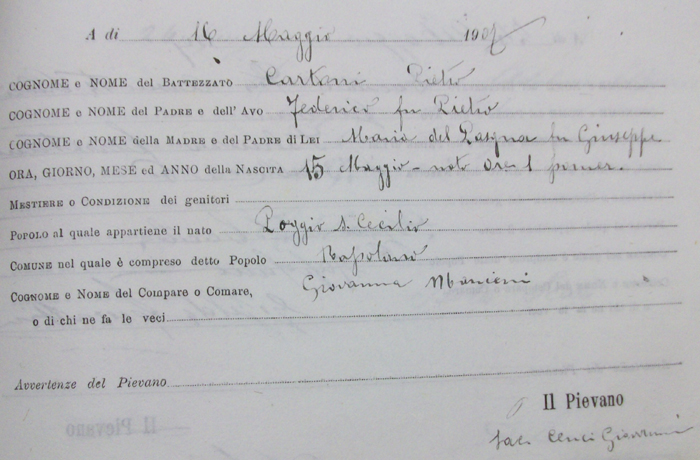 A dì 16 Maggio 1907
COGNOME e NOME del BATTEZZATO Cartoni Pietro
COGNOME e NOME del PADRE e dell' AVO Federico fu Pietro
COGNOME e NOME della MADRE e del PADRE di LEI Maria del Pasqua fu Giuseppe
ORA, GIORNO, MESE ed ANNO della NASCITA 15 Maggio - nato ore 1 pomer.
MESTIERE o CONDIZIONE dei genitori
POPOLO al quale appartiene il nato Poggio S. Cecilia
COMUNE nel quale è compreso detto Popolo Rapolano
COGNOME e NOME del Compare o Comare, Giovanna Mancini
o di chi ne fa le veci
Avvertenze del Pievano
Il Pievano
Sac. Cenci Giovanni